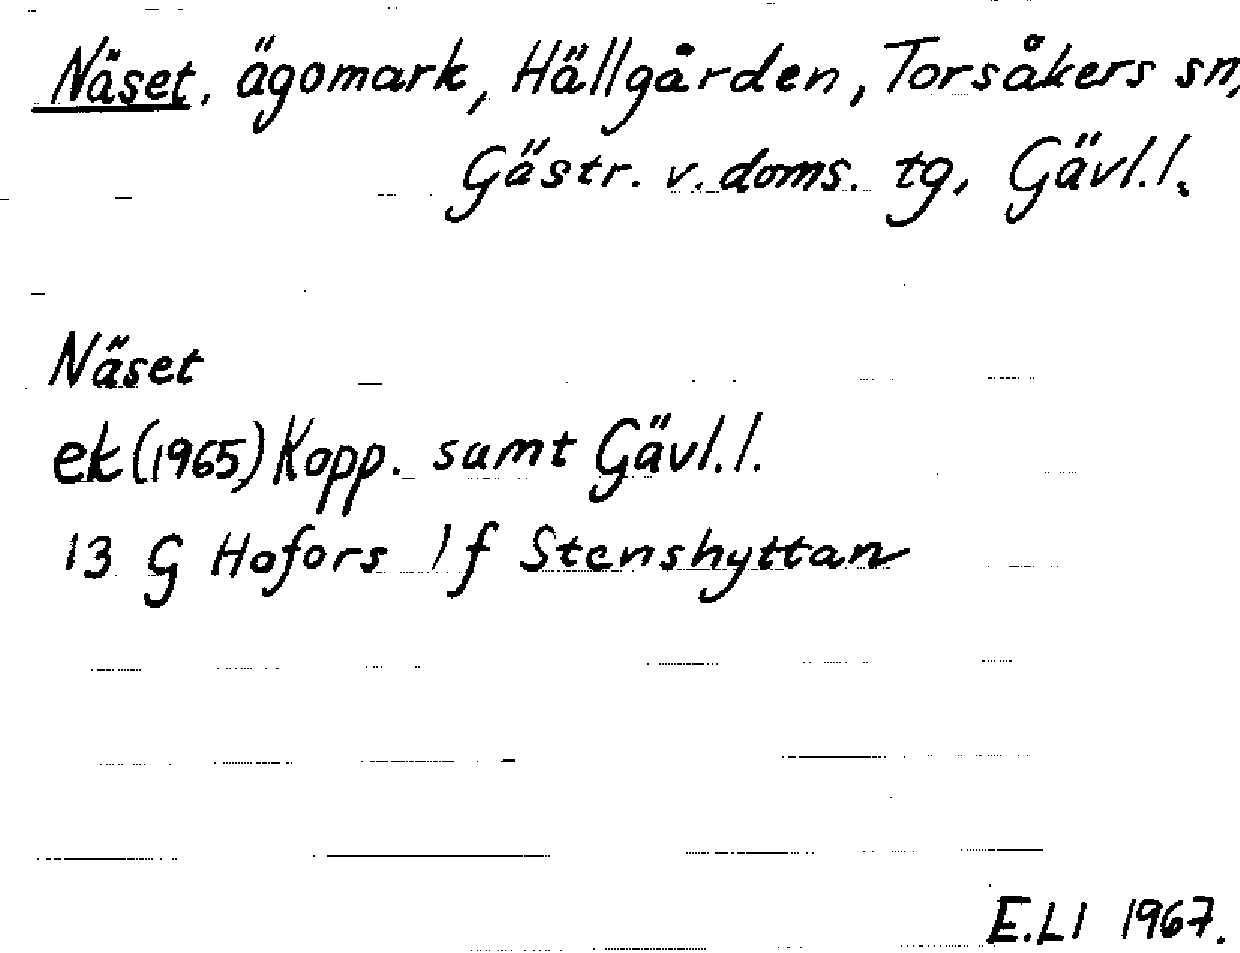 Näset, ägomark, Hällgården, Torsåkers sn,
Gästr. v. doms. tg, Gävl.l.
Näset
ek (1965) Kopp. samt Gävl.l.
13 G Hofors 1 f Stenshyttan
E.Ll 1967.